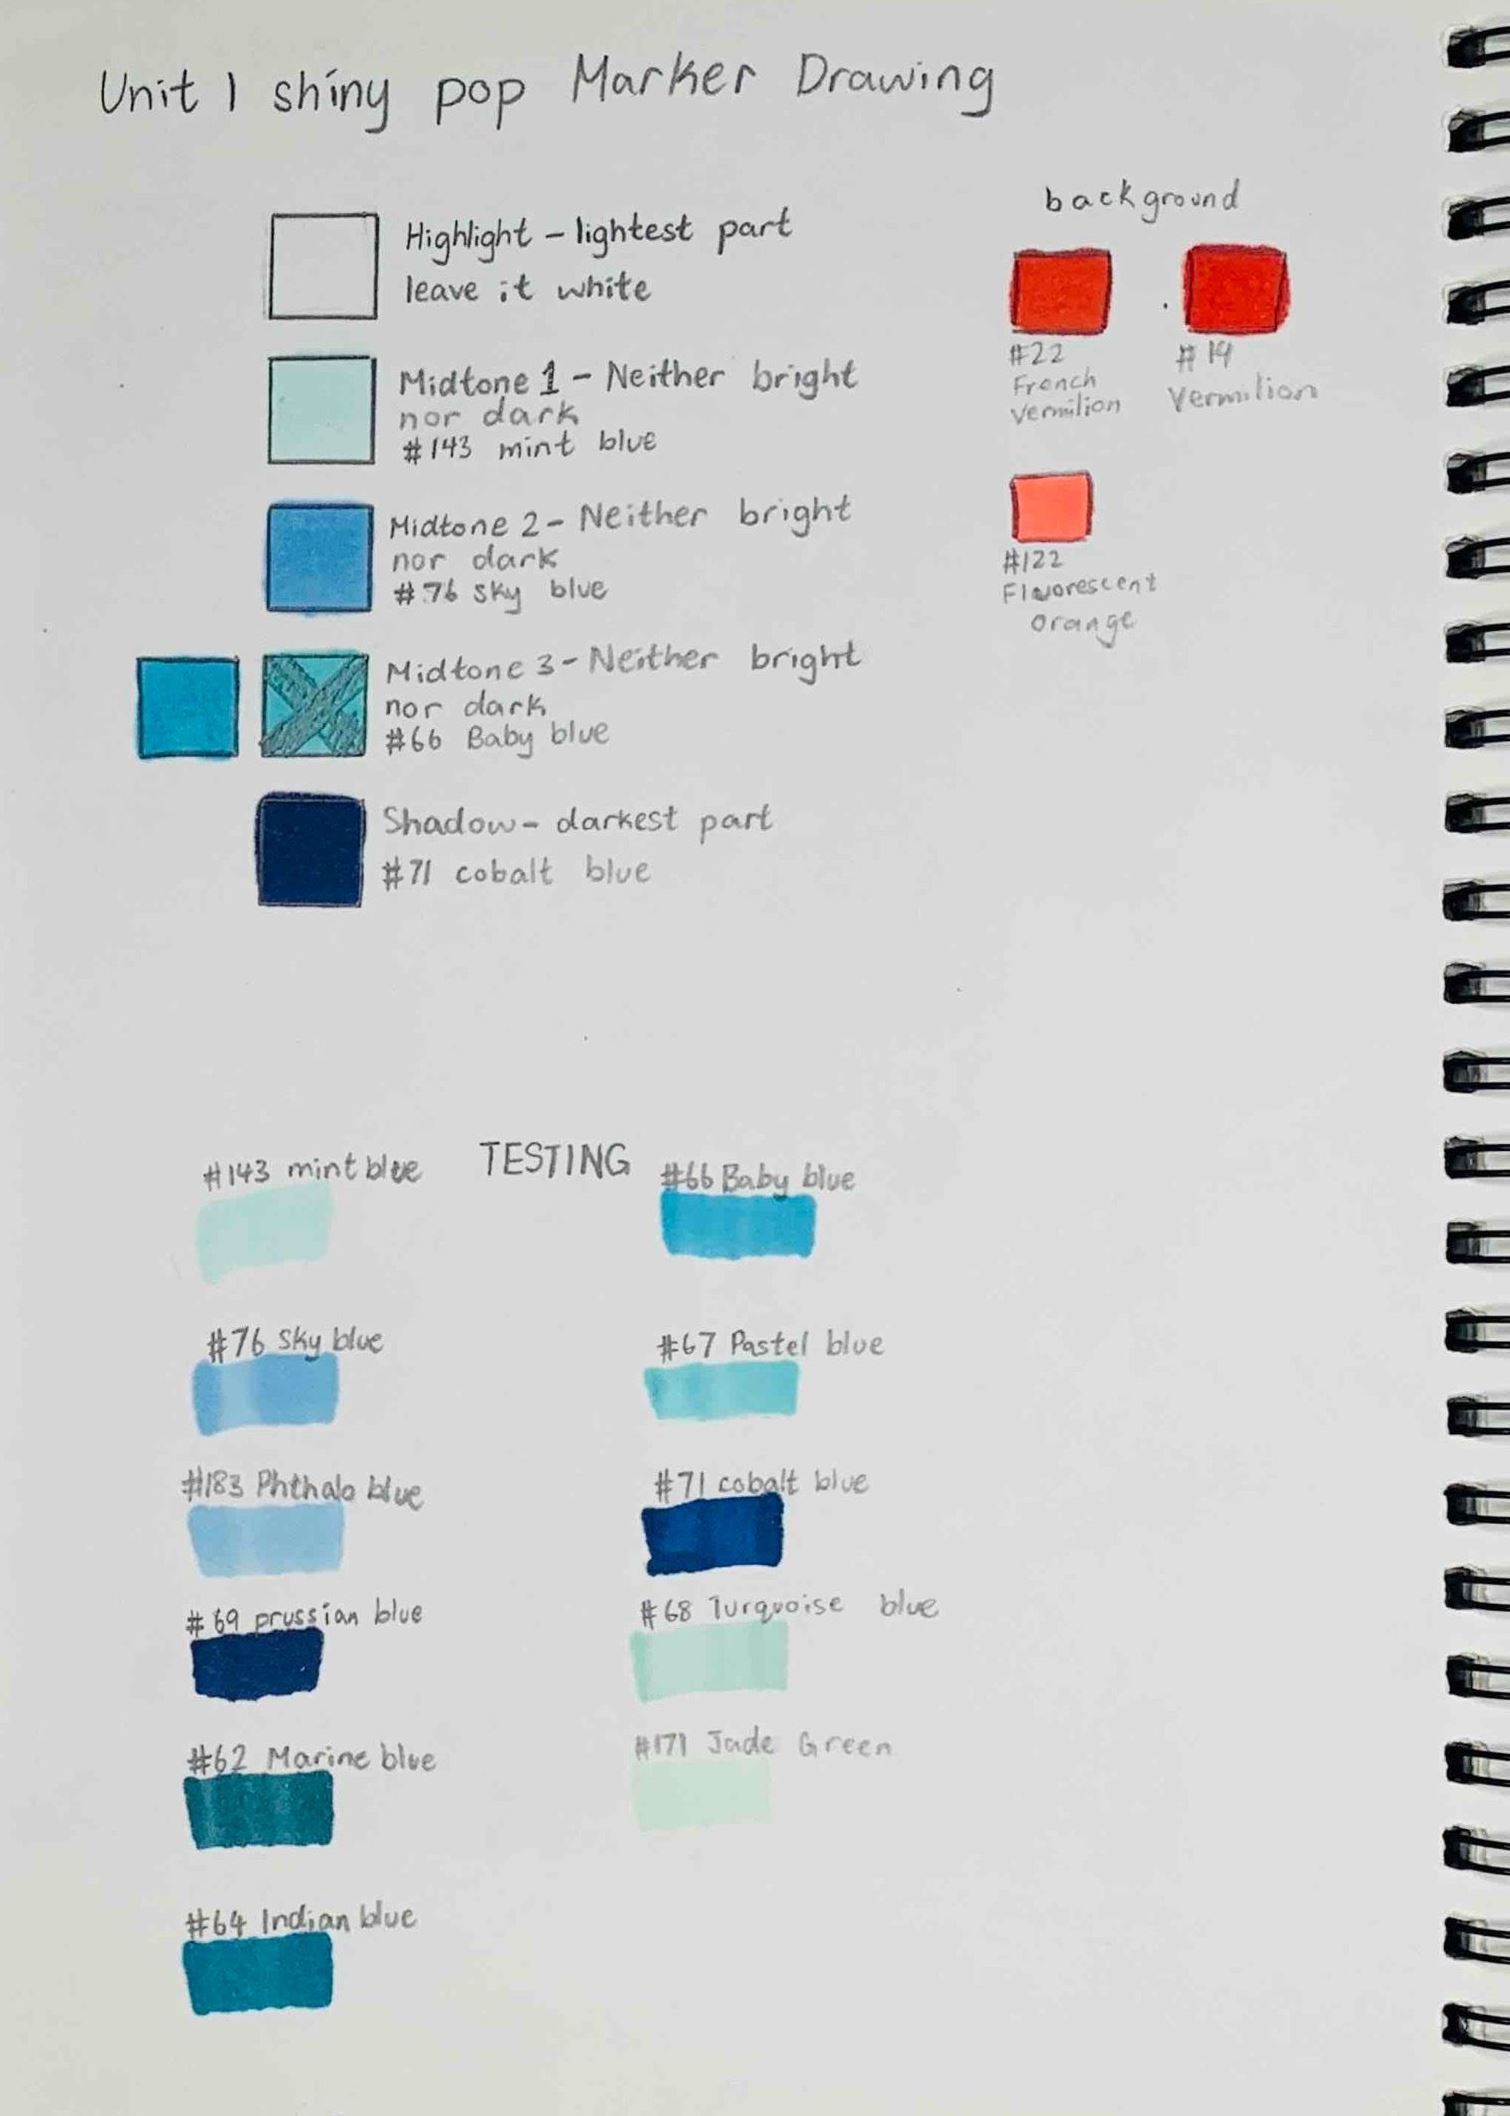 Unit 1 shiny pop Marker Drawing
Highlight - lightest part
leave it white
Midtone 1 - Neither bright
nor dark
#143 mint blue
Midtone 2 - Neither bright
nor dark
#76 sky blue
Midtone 3 - Neither bright
nor dark
#66 Baby blue
Shadow - darkest part
#71 cobalt blue
background
#22
French
vermilion
#19
Vermilion
#122
Fluorescent
orange
TESTING
#143 mint blue
#76 Sky blue
#183 Phthalo blue
#69 prussian blue
#62 Marine blue
#64 Indian blue
#66 Baby blue
#67 Pastel blue
#71 cobalt blue
#68 Turquoise blue
#171 Jade Green